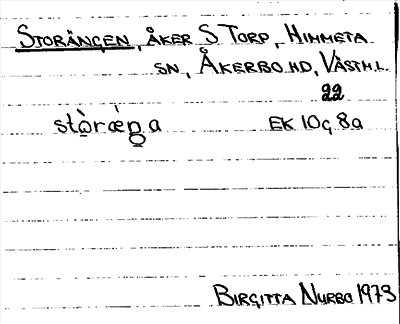 STORÄNGEN, ÅKER S TORP, HIMMETA
SN, ÅKERBO HD, VÄSTM.L.
22
stò̱ràéŋa EK 10G8a
BIRGITTA NURBO 1973